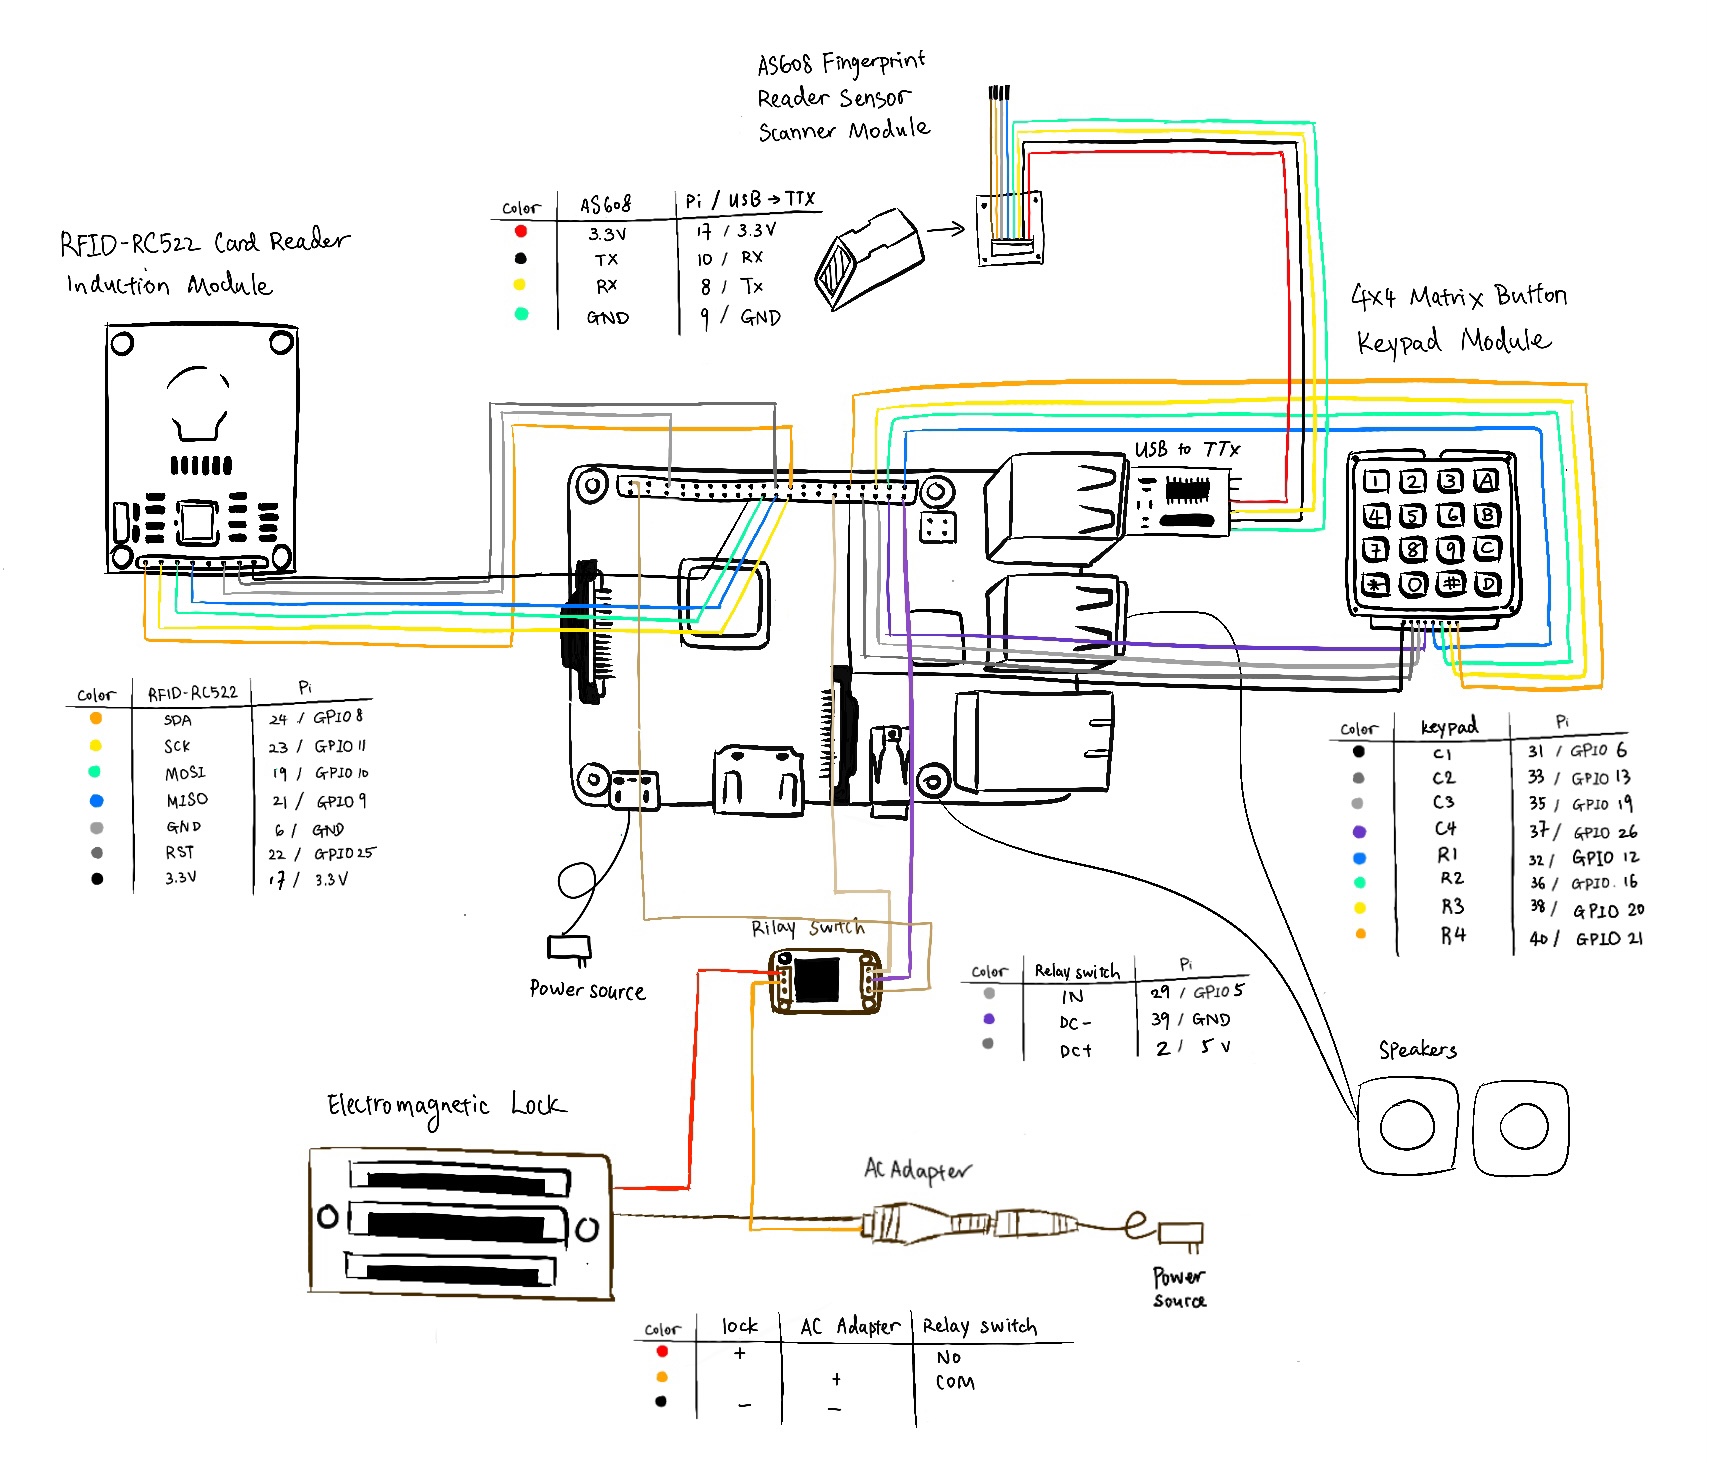 AS608 Fingerprint
Reader Sensor
Scanner Module
Color AS608 Pi / USB → TTX
3.3V 17 / 3.3V
TX 10 / RX
RX 8 / Tx
GND 9 / GND
RFID-RC522 Card Reader
Induction Module
4x4 Matrix Button
Keypad Module
USB to TTX
1 2 3 A
4 5 6 B
7 8 9 C
* 0 # D
Color RFID-RC522 Pi
SDA 24 / GPIO 8
SCK 23 / GPIO 11
MOSI 19 / GPIO 10
MISO 21 / GPIO 9
GND 6 / GND
RST 22 / GPIO 25
3.3V 17 / 3.3V
Color keypad Pi
C1 31 / GPIO 6
C2 33 / GPIO 13
C3 35 / GPIO 19
C4 37 / GPIO 26
R1 32 / GPIO 12
R2 36 / GPIO. 16
R3 38 / GPIO 20
R4 40 / GPIO 21
Power source
Rilay Switch
Color Relay switch Pi
IN 29 / GPIO 5
DC- 39 / GND
DC+ 2 / 5 V
Speakers
Electromagnetic Lock
AC Adapter
Power
source
Color lock AC Adapter Relay switch
+ NO
+ COM
- -